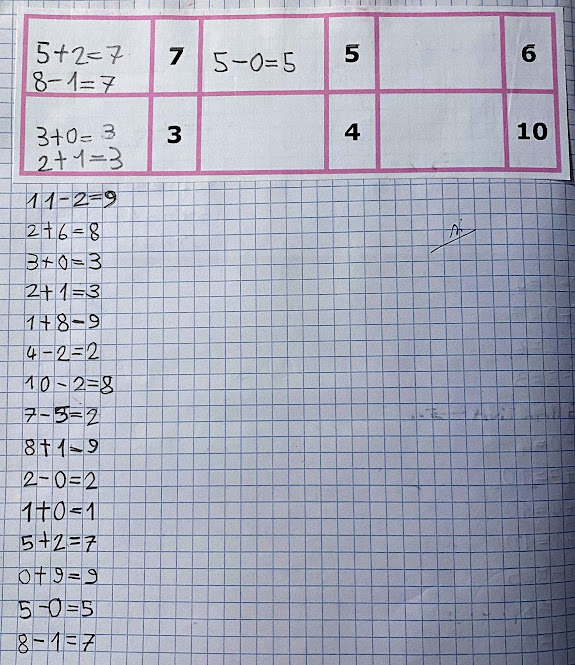 5+2=7 7 5-0=5 5 6
8-1=7
3+0=3 3 4 10
2+1=3
11-2=9
2+6=8
3+0=3
2+1=3
1+8-9
4-2=2
10-2=8
7-5=2
8+1-9
2-0=2
1+0=1
5+2=7
0+9=9
5-0=5
8-1=7